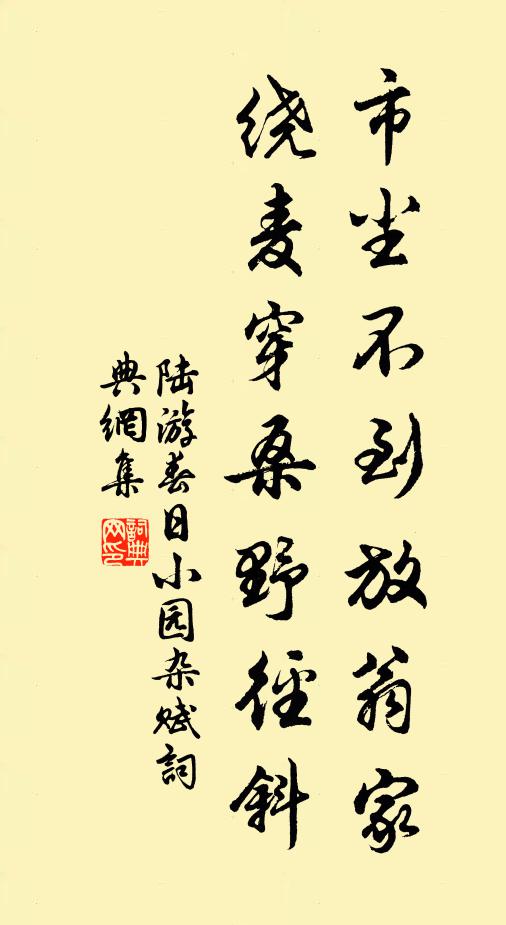 市尘不到放翁家
绕麦穿桑野径斜
陆游春日小园杂赋詞
典網集
詞典
网印